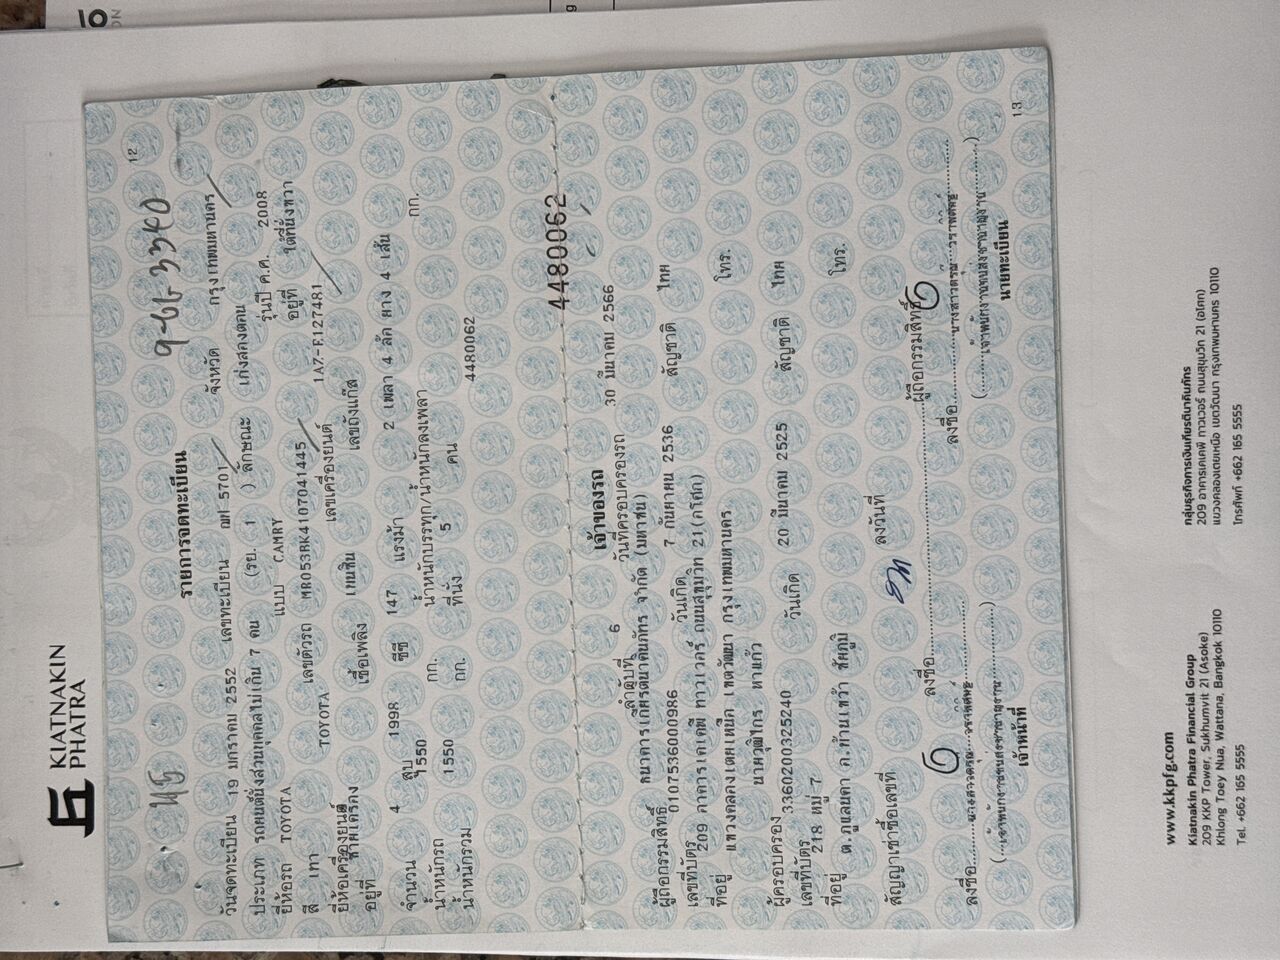 KIATNAKIN
PHATRA
12
9-6ธ-3340
รายการจดทะเบียน
วันจดทะเบียน 19 มกราคม 2552 เลขทะเบียน ฌฬ 5701 จังหวัด กรุงเทพมหานคร
ประเภท รถยนต์นั่งส่วนบุคคลไม่เกิน 7 คน (รย. 1 ) ลักษณะ เก๋งสองตอน
ยี่ห้อรถ TOYOTA แบบ CAMRY รุ่นปี ค.ศ. 2008
สี เทา เลขตัวรถ MR053BK4107041445 อยู่ที่ ใต้ที่นั่งขวา
ยี่ห้อเครื่องยนต์ TOYOTA เลขเครื่องยนต์ 1AZ-E127481
อยู่ที่ ท้ายเครื่อง เชื้อเพลิง เบนซิน เลขถังแก๊ส
จำนวน 4 สูบ 1998 ซีซี 147 แรงม้า 2 เพลา 4 ล้อ ยาง 4 เส้น
น้ำหนักรถ 1550 กก. น้ำหนักบรรทุก/น้ำหนักลงเพลา กก.
น้ำหนักรวม 1550 กก. ที่นั่ง 5 คน 4480062
4480062
เจ้าของรถ
ลำดับที่ 6 วันที่ครอบครองรถ 30 มีนาคม 2566
ผู้ถือกรรมสิทธิ์ ธนาคารเกียรตินาคินภัทร จำกัด (มหาชน)
เลขที่บัตร 0107536000986 วันเกิด 7 กันยายน 2536 สัญชาติ ไทย
ที่อยู่ 209 อาคารเคเคพี ทาวเวอร์ ถนนสุขุมวิท 21(อโศก)
แขวงคลองเตยเหนือ เขตวัฒนา กรุงเทพมหานคร โทร.
ผู้ครอบครอง นายวุฒิไกร หาแก้ว
เลขที่บัตร 3360200325240 วันเกิด 20 มีนาคม 2525 สัญชาติ ไทย
ที่อยู่ 218 หมู่ 7
ต.กุแลนคา อ.บ้านเขว้า ชัยภูมิ โทร.
สัญญาเช่าซื้อเลขที่ ลงวันที่
ลงชื่อ ผู้ถือกรรมสิทธิ์
ลงชื่อ ลงชื่อ
เจ้าหน้าที่ นายทะเบียน
13
www.kkpfg.com
Kiatnakin Phatra Financial Group
209 KKP Tower, Sukhumvit 21 (Asoke)
Khlong Toey Nua, Wattana, Bangkok 10110
Tel. +662 165 5555
กลุ่มธุรกิจการเงินเกียรตินาคินภัทร
209 อาคารเคเคพี ทาวเวอร์ ถนนสุขุมวิท 21 (อโศก)
แขวงคลองเตยเหนือ เขตวัฒนา กรุงเทพมหานคร 10110
โทรศัพท์ +662 165 5555